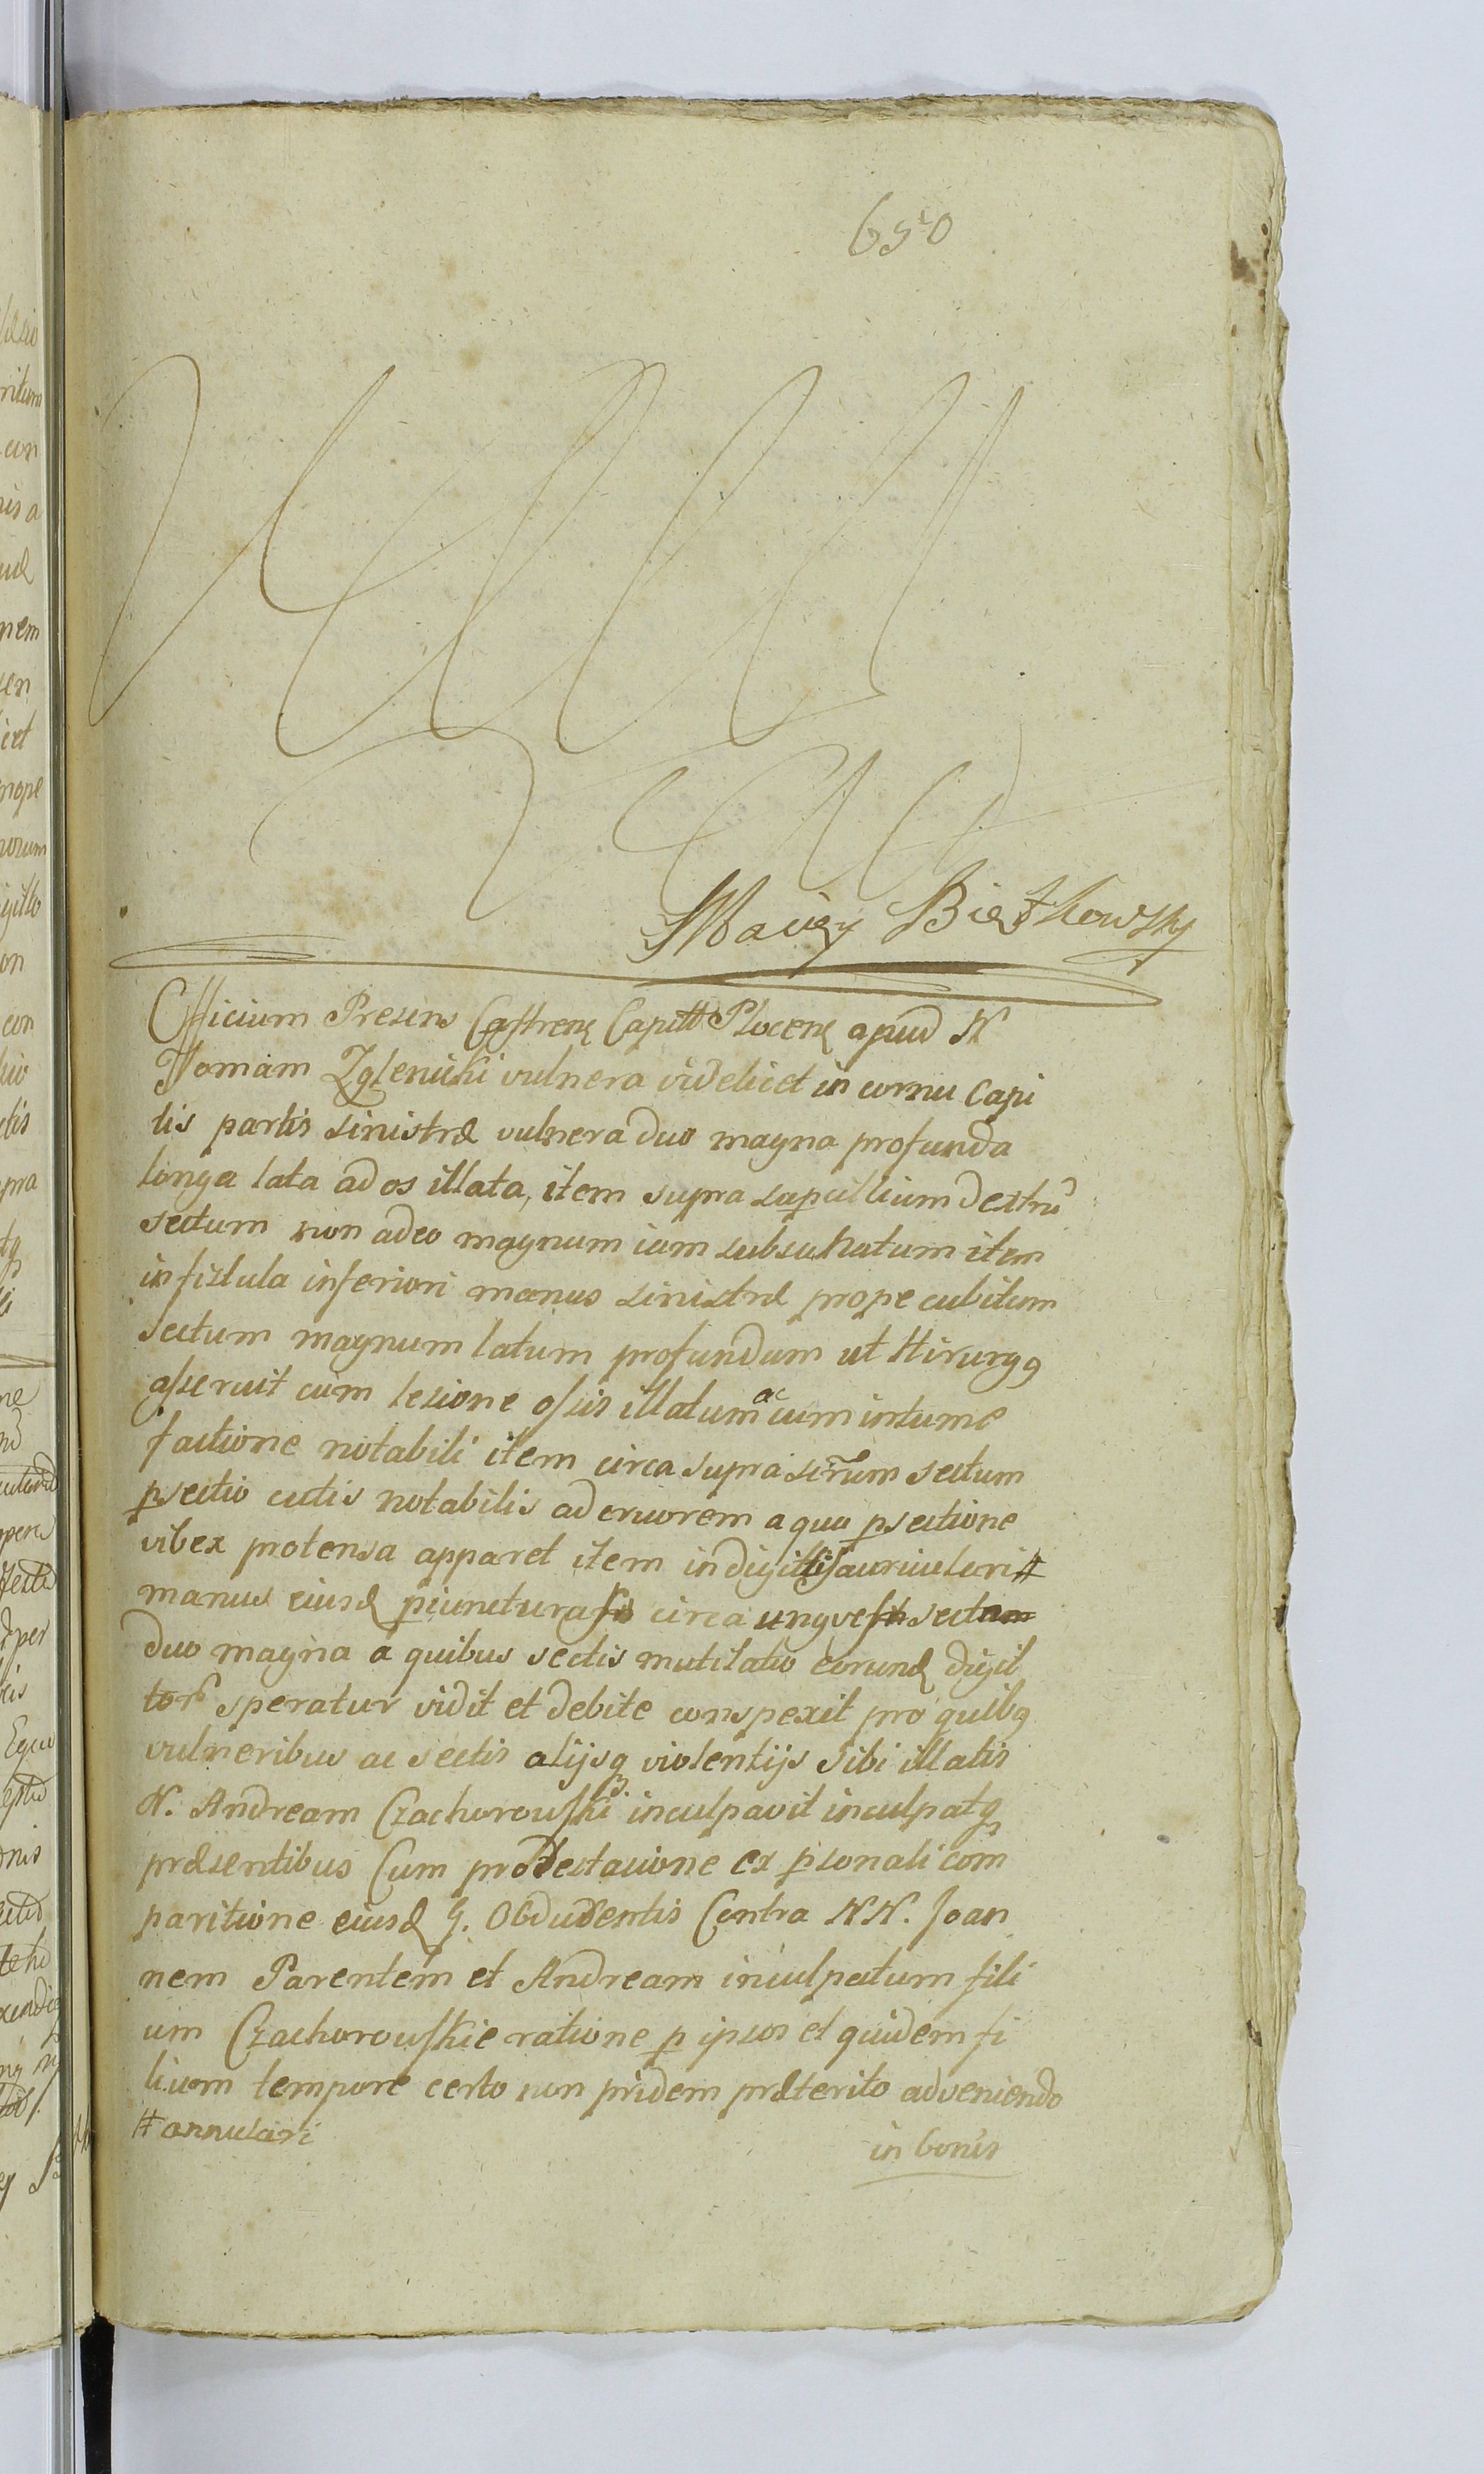 650
Vacat
Maciey Bietkowsky
Officium Presens Castren Capitt Plocen apud N
Thomam Zglenicki vulnera videlicet in cornu Capi
tis partis sinistræ vulnera duo magna profunda
longa lata ad os illata, item supra supcillium dextrũ
sectum non adeo magnum iam subsanatum item
in fistula inferiori manus sinistræ prope cubitum
sectum magnum latum profundum ut Hirurgg
asseruit cum lesione ossis illatum ac cum intume
factione notabili item circa supra scrũm sectum
psectio cutis notabilis ad cruorem a qua psectione
vibex protensa apparet item in digittis auriculari #
manus eiusd piuncturas circa ungues secta
duo magna a quibus sectis mutilatio eorund digit
tor speratur vidit et debite conspexit pro quibg
vulneribus ac sectis alijsq violentijs sibi illatis
N. Andream Czachorowski inculpavit inculpatq
præsentibus Cum protestatione ex psonali com
paritione eiusd G. Obducentis Contra NN. Joan
nem Parentem et Andream inculpatum fili
um Czachorowskie ratione p ipsos et quidem fi
lium tempore certo non pridem præterito adveniendo
# annulari
in bonis